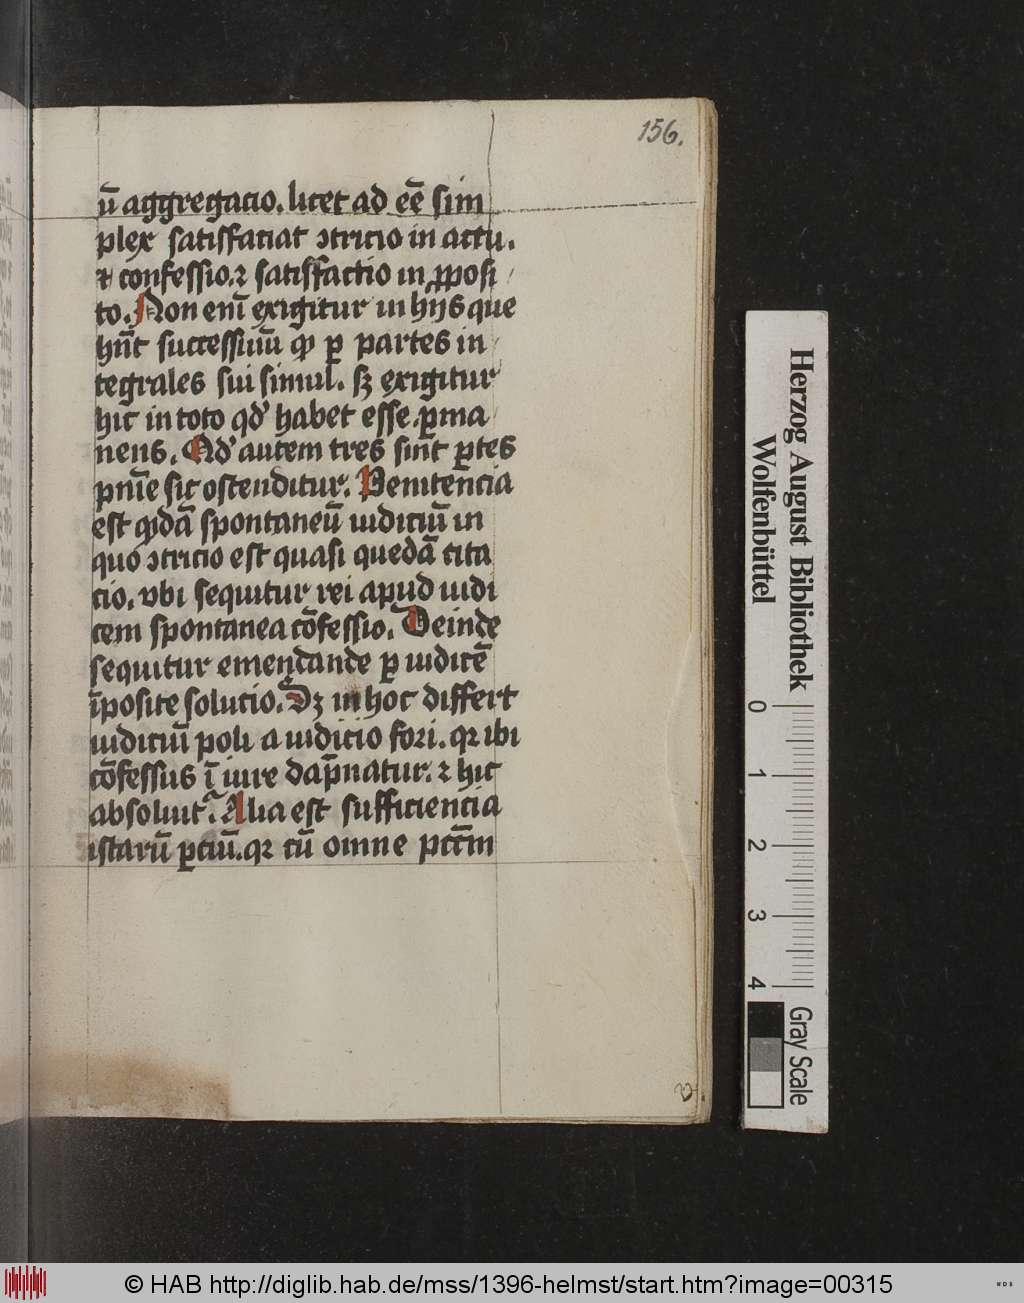 156.
ū aggregacio. licet ad eē sim
plex satisffaciat ɔtricio in actu.
⁊ confessio.⁊ satisffactio in ꝓposi
to. Non enī exigitur in hijs que
hn̄t successiuū ꝙ ꝑ partes in
tegrales sui simul. sꝫ exigitur
hic in toto qđ habet esse ꝑma
nens. Qđ autem tres sint ꝑtes
pn̄ie sic ostenditur. Penitencia
est qͥdā spontaneū iudiciū in
quo ɔtricio est quasi quedā cita
cio. vbi sequitur rei apud iudi
cem spontanea cōfessio. Deinde
sequitur emendande ꝑ iudicē
īposite solucio. Dꝫ in hoc differt
iudiciū poli a iudicio fori. qꝛ ibi
cōfessus ī iure dāpnatur. ⁊ hic
absoluit᷑. Alia est sufficiencia
istarū ꝑciū. qꝛ cū omne pctm̄
Herzog August Bibliothek
Wolfenbüttel
0 1 2 3 4
Gray Scale
© HAB http://diglib.hab.de/mss/1396-helmst/start.htm?image=00315